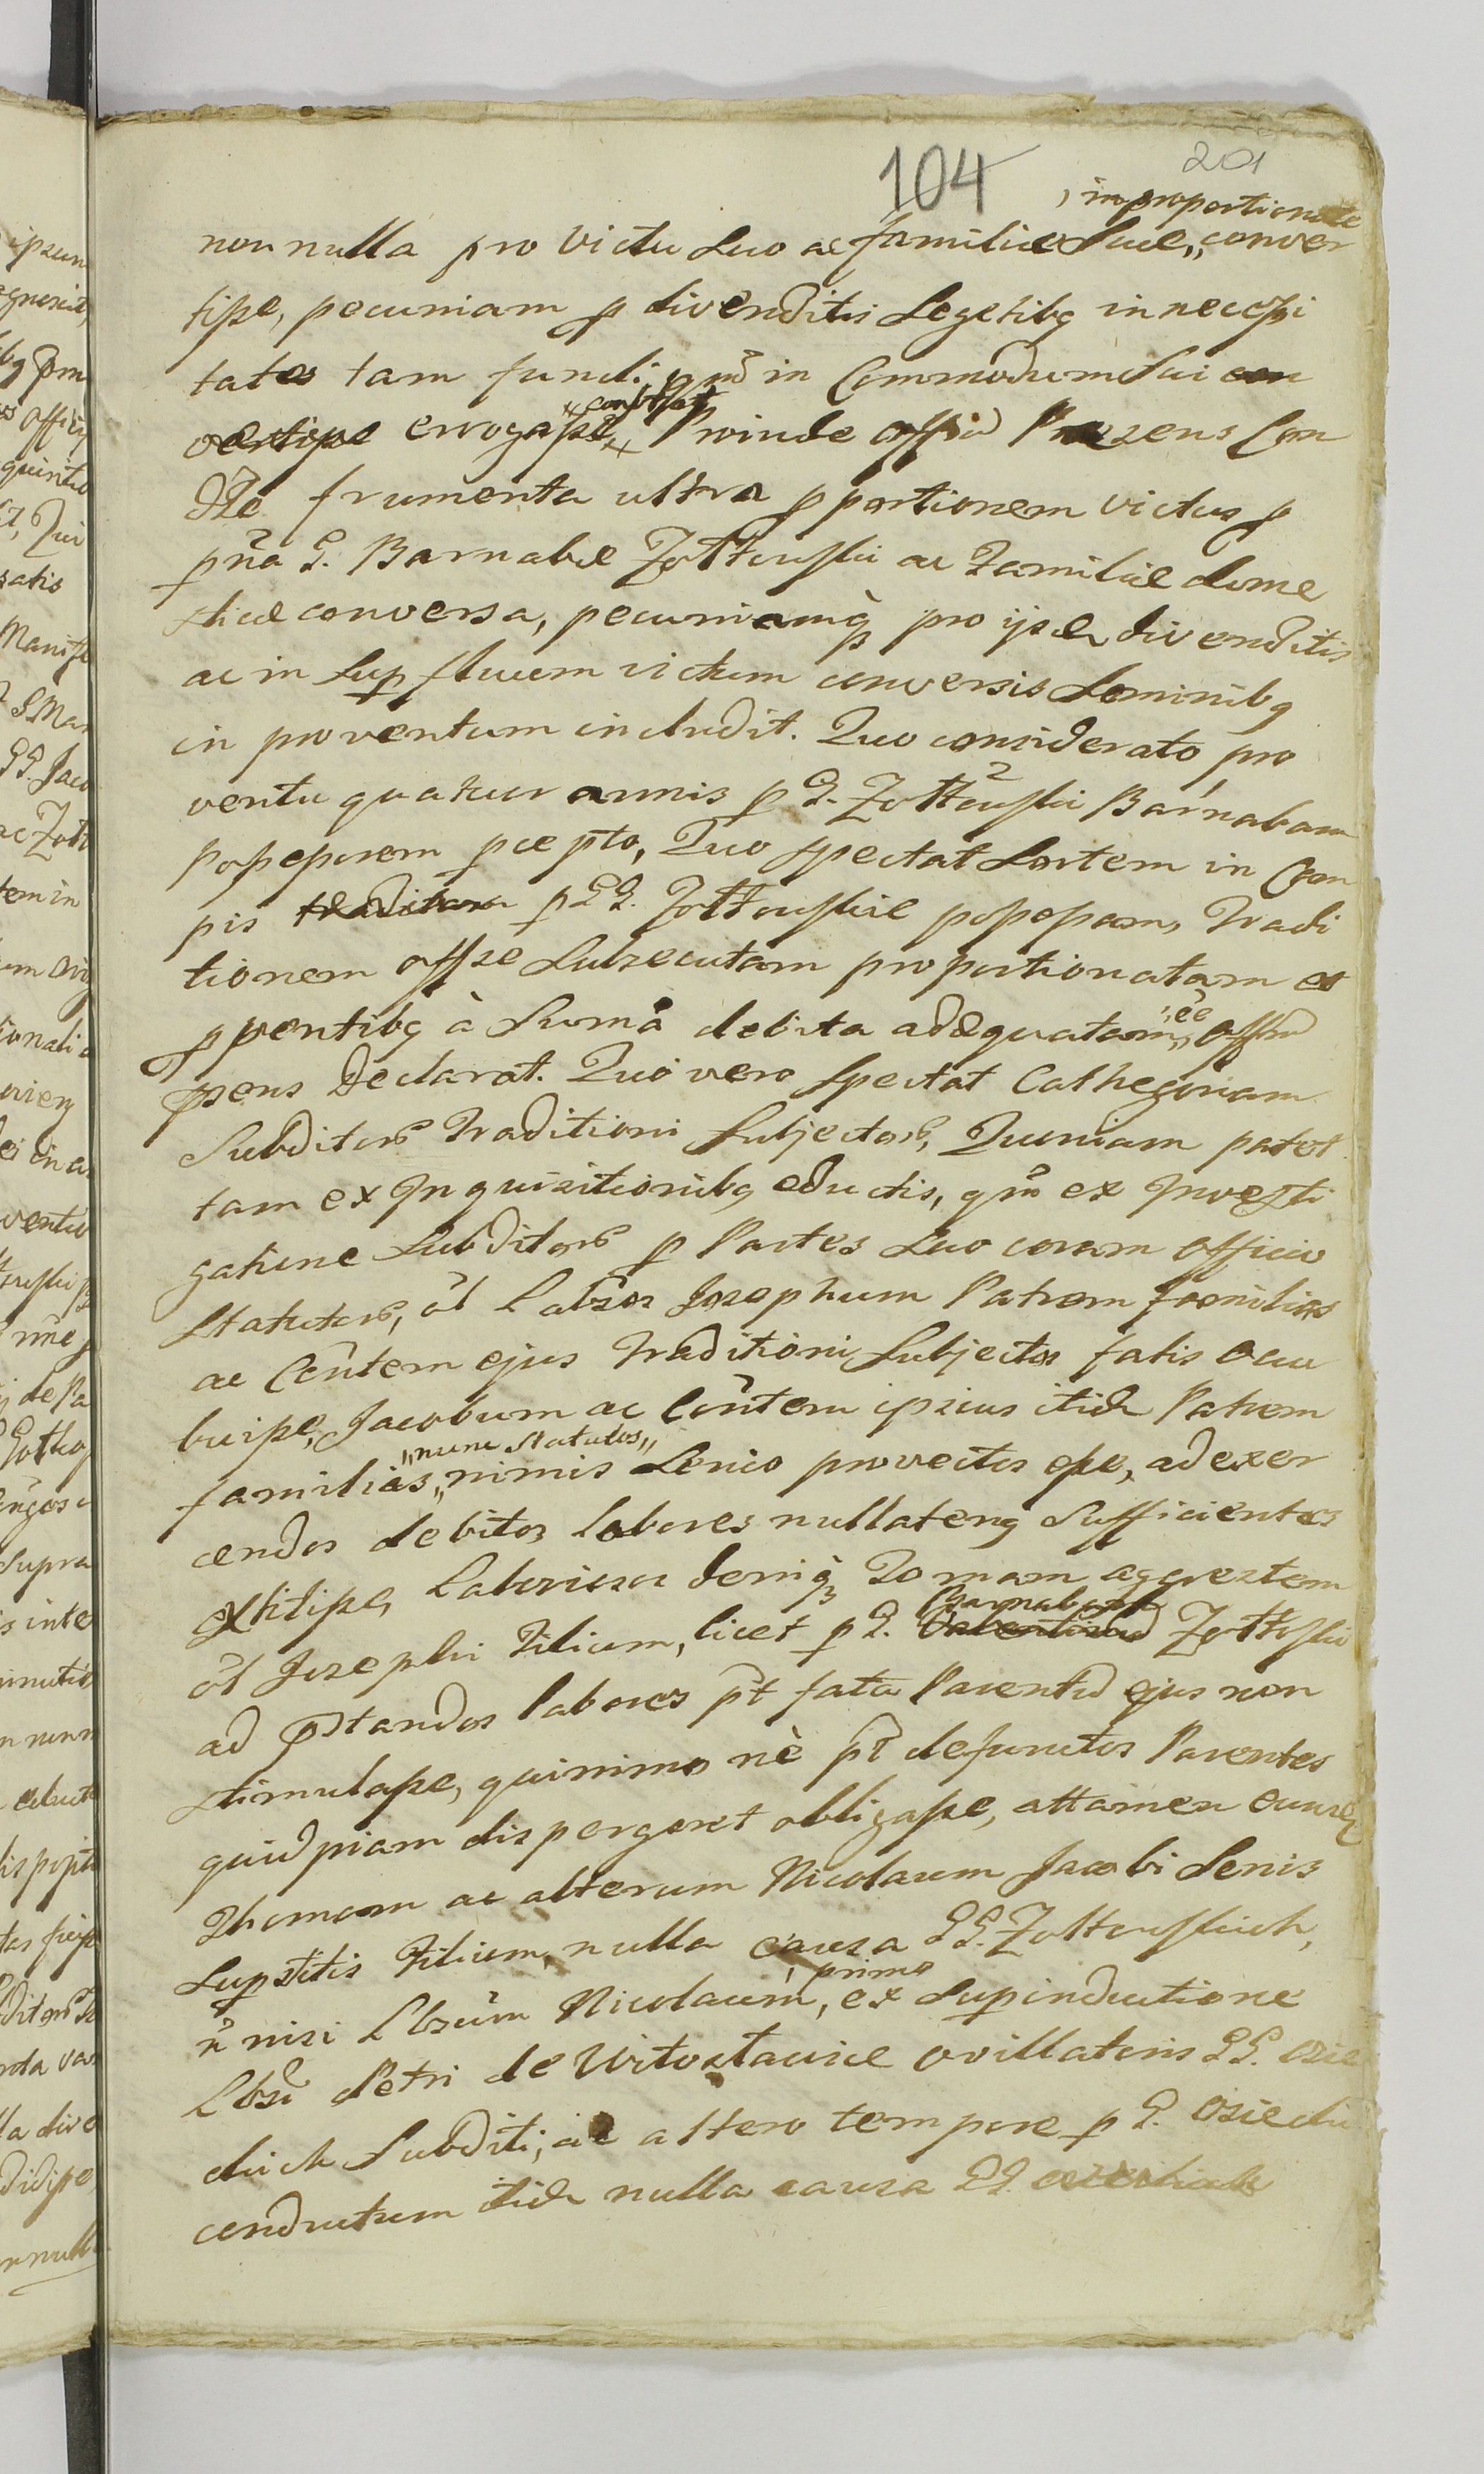 104
201
, improportionate
non nulla pro victu Suo ac familiæ Suæ,, conver
tisse, pecuniam p divenditis Segetibq in necessi
tates tam fundi, qm̃ in Commodum Sui con
vertisse erogasse constat Proinde Offiũ Præzens Con
dẽ frumenta ultra pportionem victus p
pñã G. Barnabæ Zołtowski ac Familiæ dome
sticæ conversa, pecuniamq̃ pro ijsd divenditis
ac in Supfluum victum conversis Seminibq
in proventum includit. Quo considerato pro
ventu quatuor annis p G. Zołtowski Barnabam
Possessorem pcepto, Quo spectat Sortem in Czon
pis p GG. Zołtowskie possessam, Tradi
tionem offse Subsecutam proportionatam et
pventibq à Summa debita adæquatam,, eẽ,, Offiũ
pens Declarat. Quo vero Spectat Cathegoriam
Subditorũ Traditioni Subjectorũ, Quoniam patet
tam ex Inquisitionibq eductis, qm̃ ex Investi
gatione Subditorũ p Partes Suo coram Officio
Statutorũ, õl Labsos Josephum Patrem familias
ac Cõntem ejus Traditioni Subjectos fatis occu
buisse, Jacobum ac Cõntem ipsius itid Patrem
familias,, nunc Statutos,, nimis Senio provectos esse, ad exer
cendos debitos labores nullatenq Sufficientes
extitisse, Laboriosos deniq̃ Tomam agrestem
õl Josephi Filium, licet p G. Barnabam Zołtowski
ad p̃standos labores p̃t fata Parentũ ejus non
stimulasse, quinimo nè p̃t defunctos Parentes
quidpiam dispergeret obligasse, attamen eund
Thomam ac alterum Nicolaum Jacobi Senis
Supstitis Filium, nulla causa GG. Zołtowskich,
ñ nisi Lbsũm Nicolaum, primo ex Supinductione
Lbsi Petri de Witostawice ovillatoris GG. Osie
ckich Subditi, ac altero tempore p G. Osiecki
conductum itid nulla causa GG.